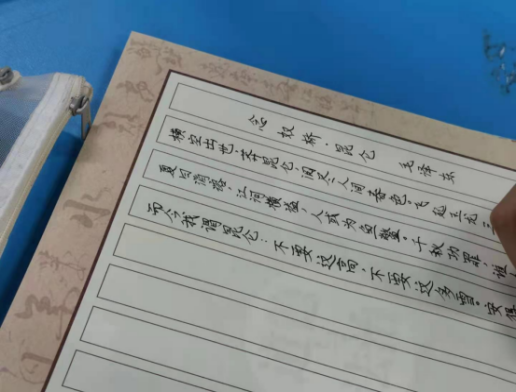 念奴娇·昆仑 毛泽东
横空出世,莽昆仑,阅尽人间春色。飞起玉龙三
夏日消溶,江河横溢,人或为鱼鳖。千秋功罪,谁
而今我谓昆仑:不要这高,不要这多雪。安得